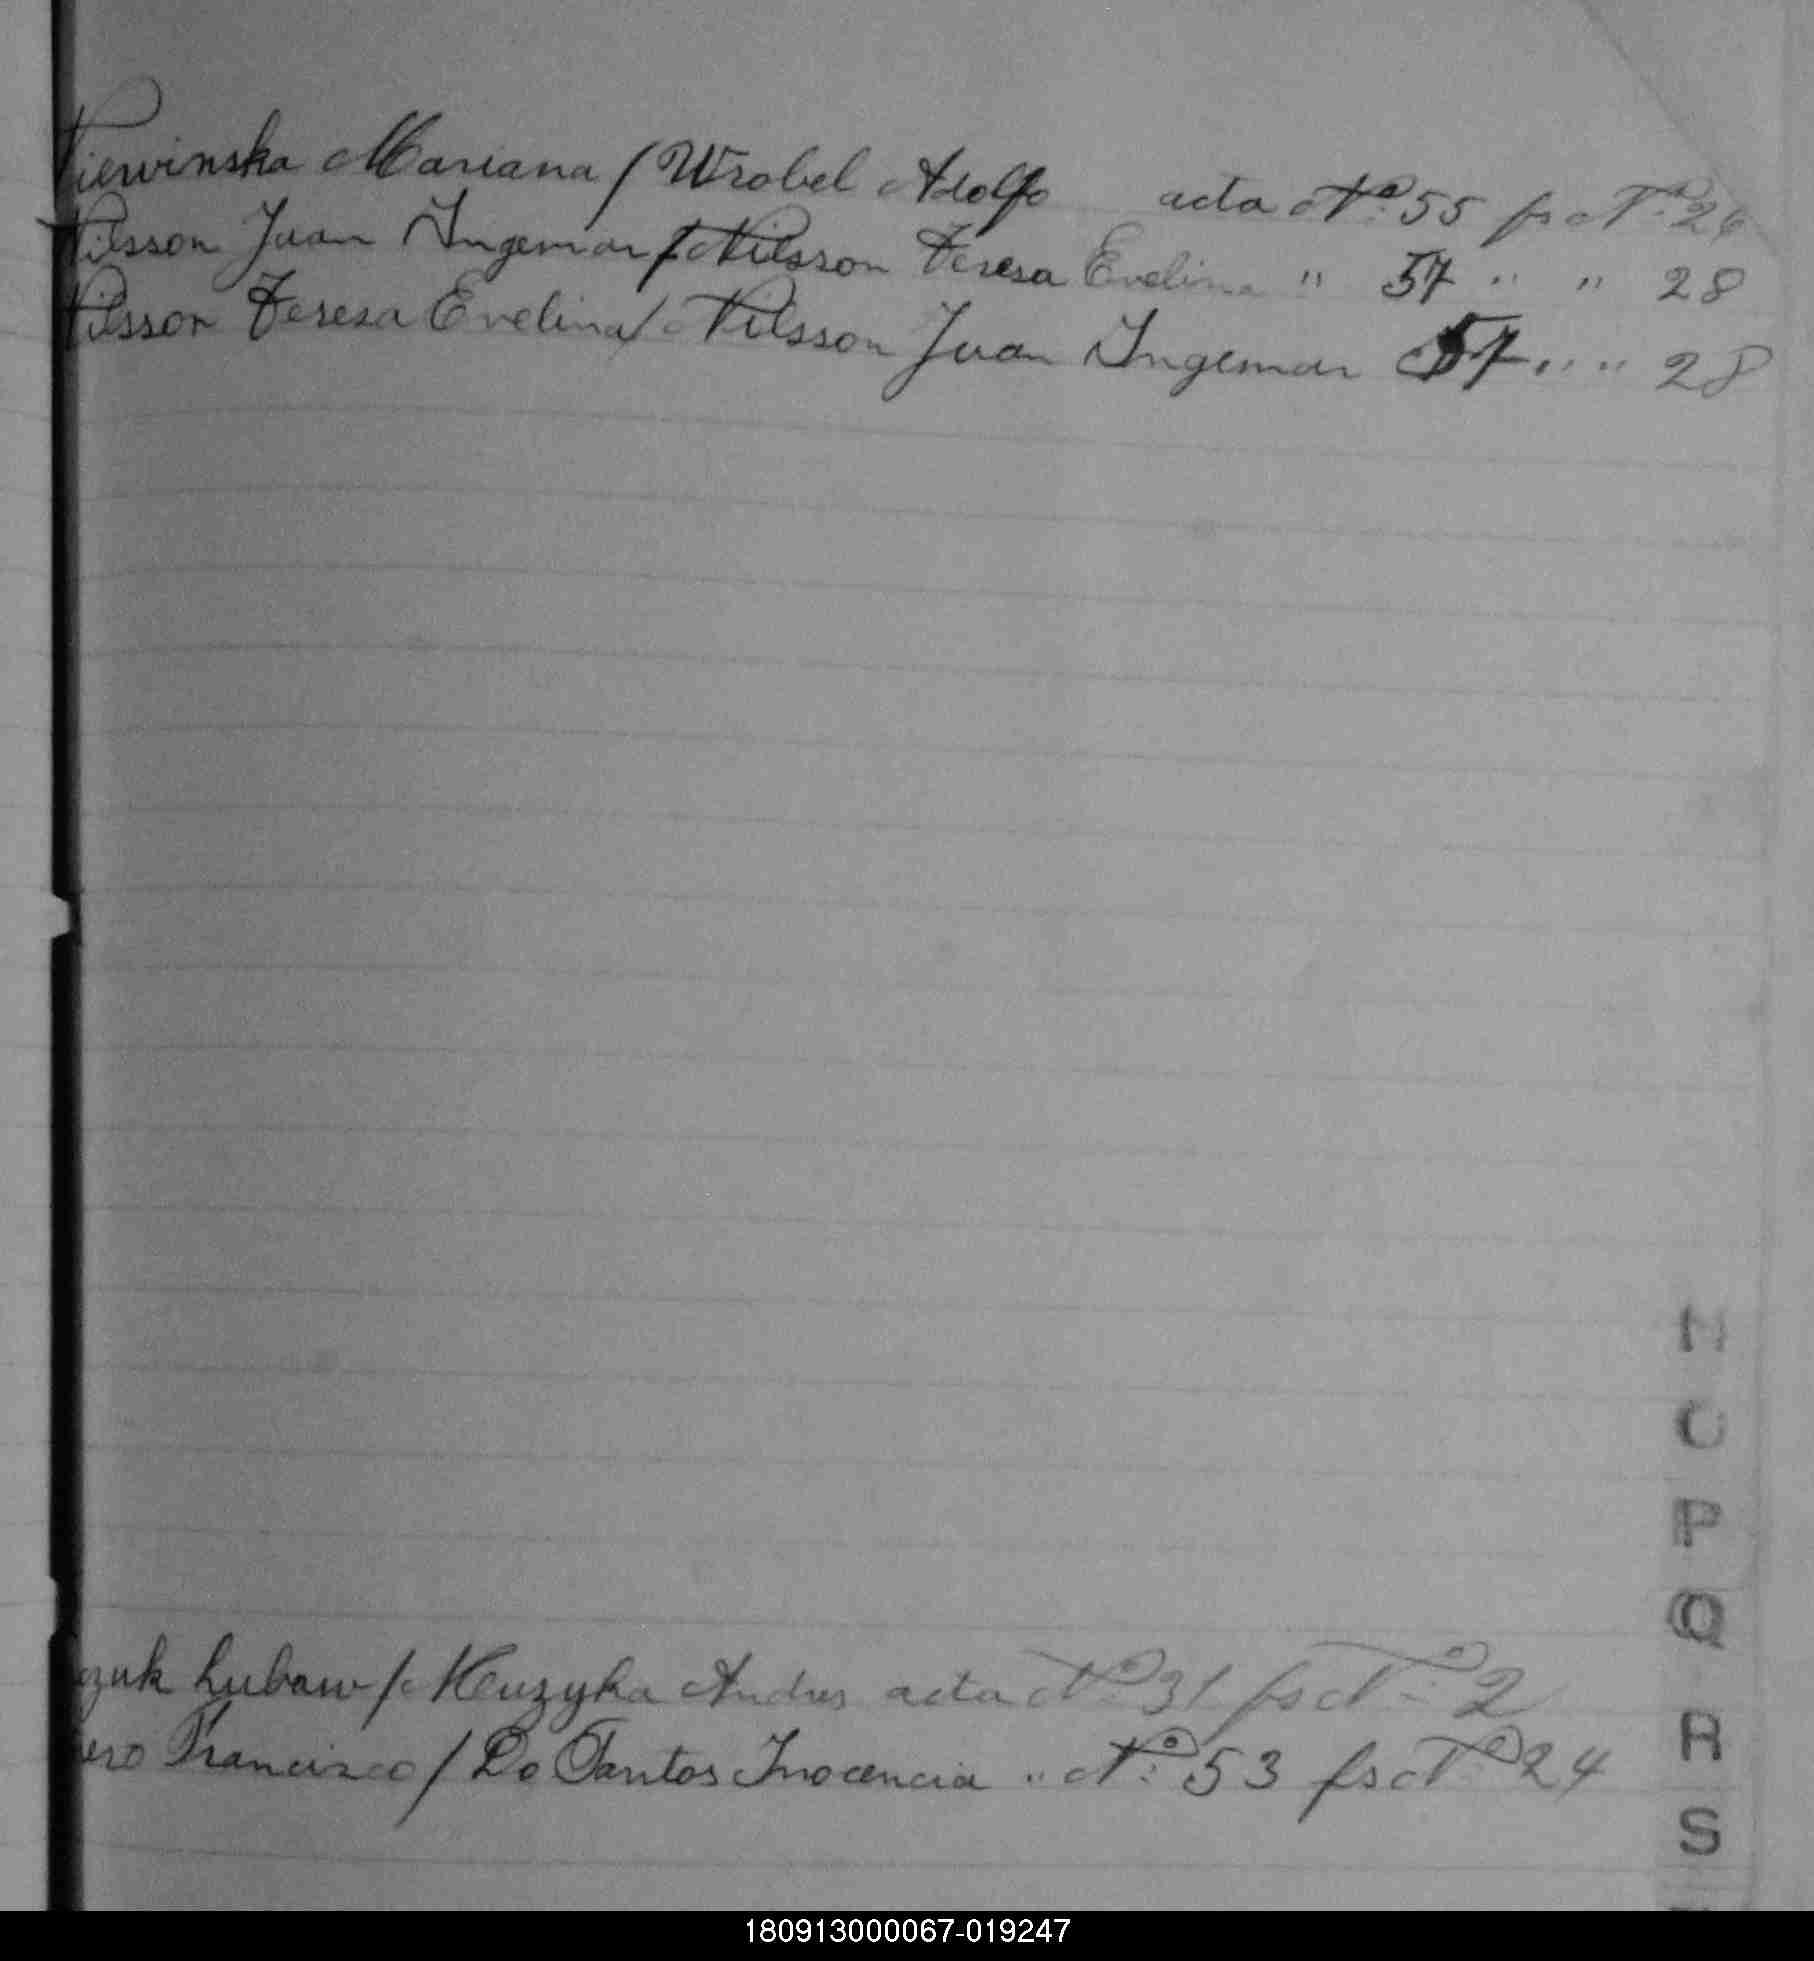 Niewinska Mariana / Wrobel Adolfo acta Nº 55 fs Nº 26
Nilsson Juan Ingemar / Nilsson Teresa Evelina " 57 " " 28
Nilsson Teresa Evelina / Nilsson Juan Ingemar 57 " " 28
N
O
P
Q
czuk Lubaw / Muzyka Andres acta Nº 31 fs Nº 2
R
Francisco / Do Santos Inocencia " Nº 53 fs Nº 24
S
180913000067-019247